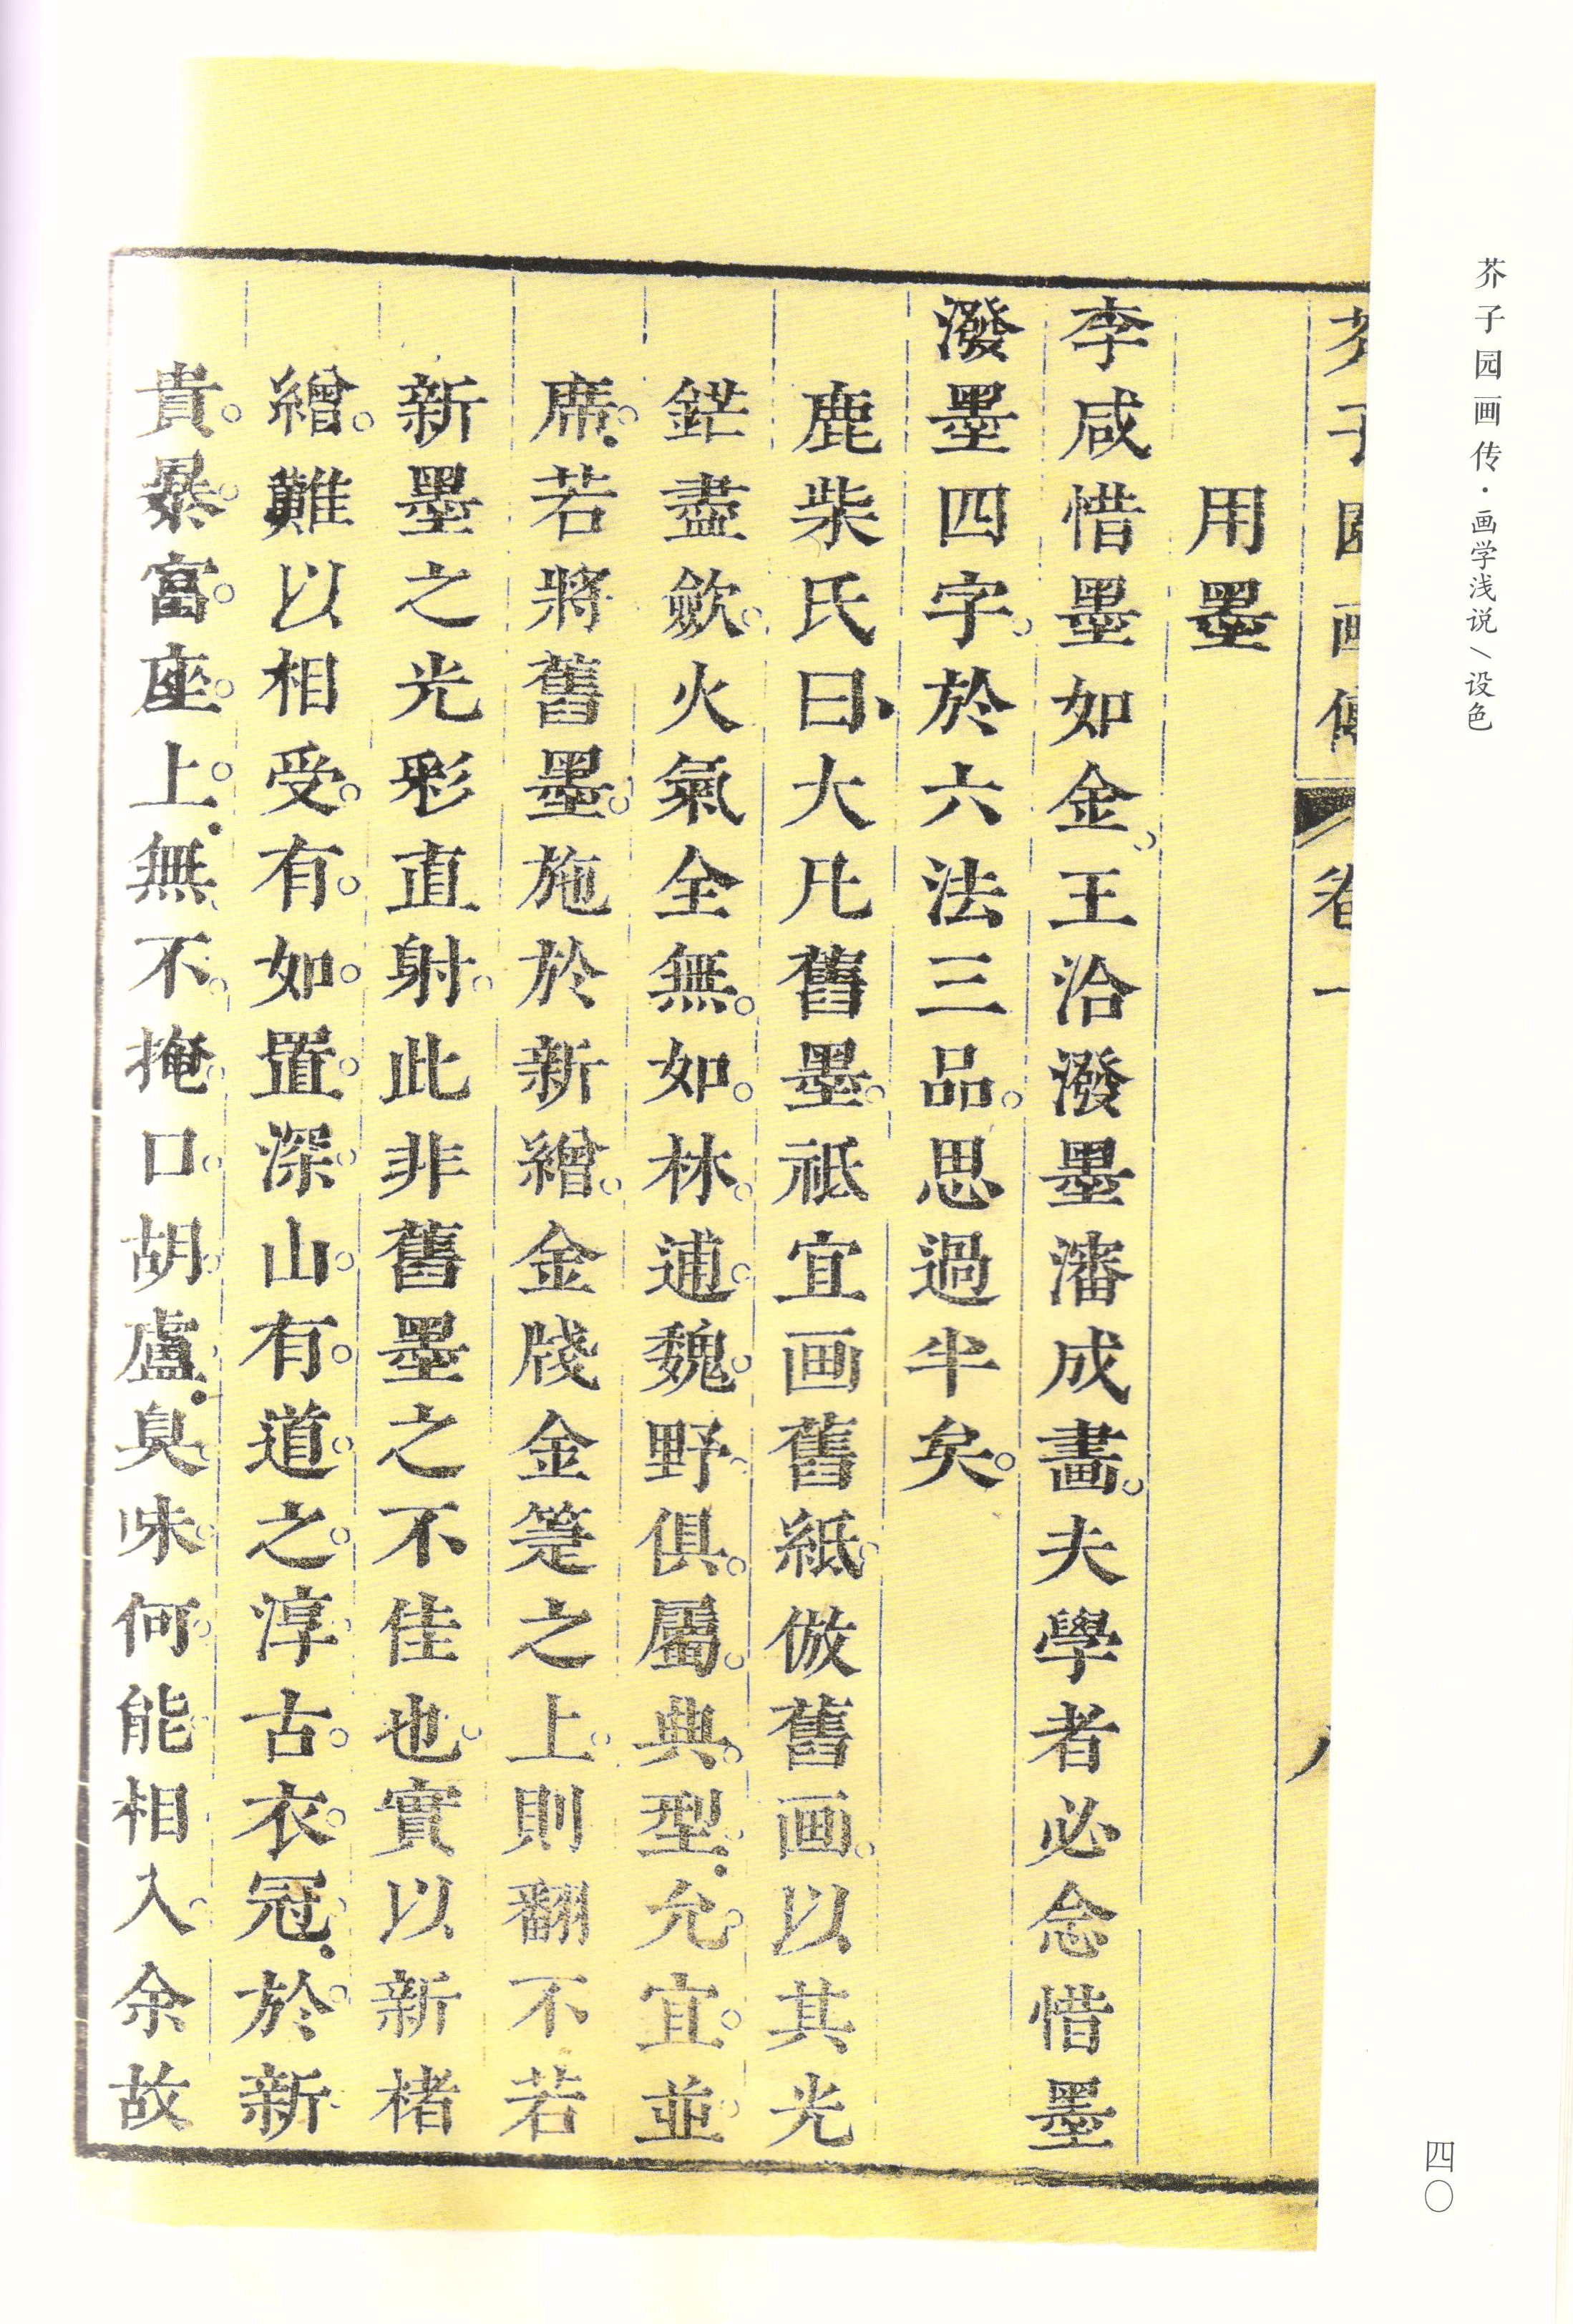 芥子园画传·画学浅说/设色
四〇
芥子園画傳 卷一 八
用墨
李咸惜墨如金。王洽潑墨瀋成畫。夫學者必念惜墨
潑墨四字。於六法三品。思過半矣。
鹿柴氏曰、大凡舊墨。祗宜画舊紙。倣舊画。以其光
鋩盡歛。火氣全無。如。林。逋。魏。野。俱。屬。典。型。允。宜。並。
席。若將舊墨。施於新繒。金牋金箑之上。則翻不若
新墨之光彩直射。此非舊墨之不佳也。實以新楮
繒。難以相受。有。如。置。深。山。有。道。之。淳。古。衣。冠。於。新。
貴。暴。富。座。上。無。不。掩。口。胡。盧。臭。味。何。能。相入。余故